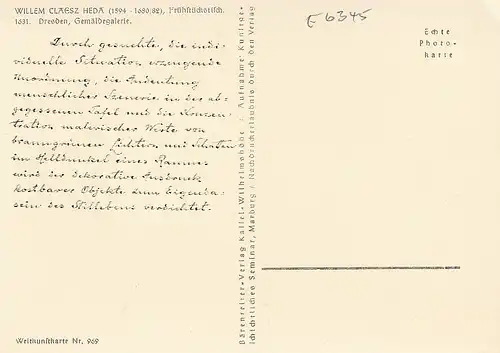 WILLEM CLAESZ HEDA (1594 - 1680/82), Frühstückstisch.
1631. Dresden, Gemäldegalerie.
E 6345
Echte
Photo-
karte
Durch gesuchte, die indi-
viduelle Situation erzeugende
Unordnung, die Andeutung
menschlicher Szenerie in der ab-
gegessenen Tafel und die Konzen-
tration malerischer Werte von
braungrünen Lichtern und Schatten
im Helldunkel eines Raumes
wird der dekorative Ausdruck
kostbarer Objekte zum Eigenda-
sein des Stillebens verdichtet.
Bärenreiter-Verlag Kassel-Wilhelmshöhe / Aufnahme: Kunstge-
schichtliches Seminar, Marburg / Nachdruckerlaubnis durch den Verlag
Weltkunstkarte Nr. 969